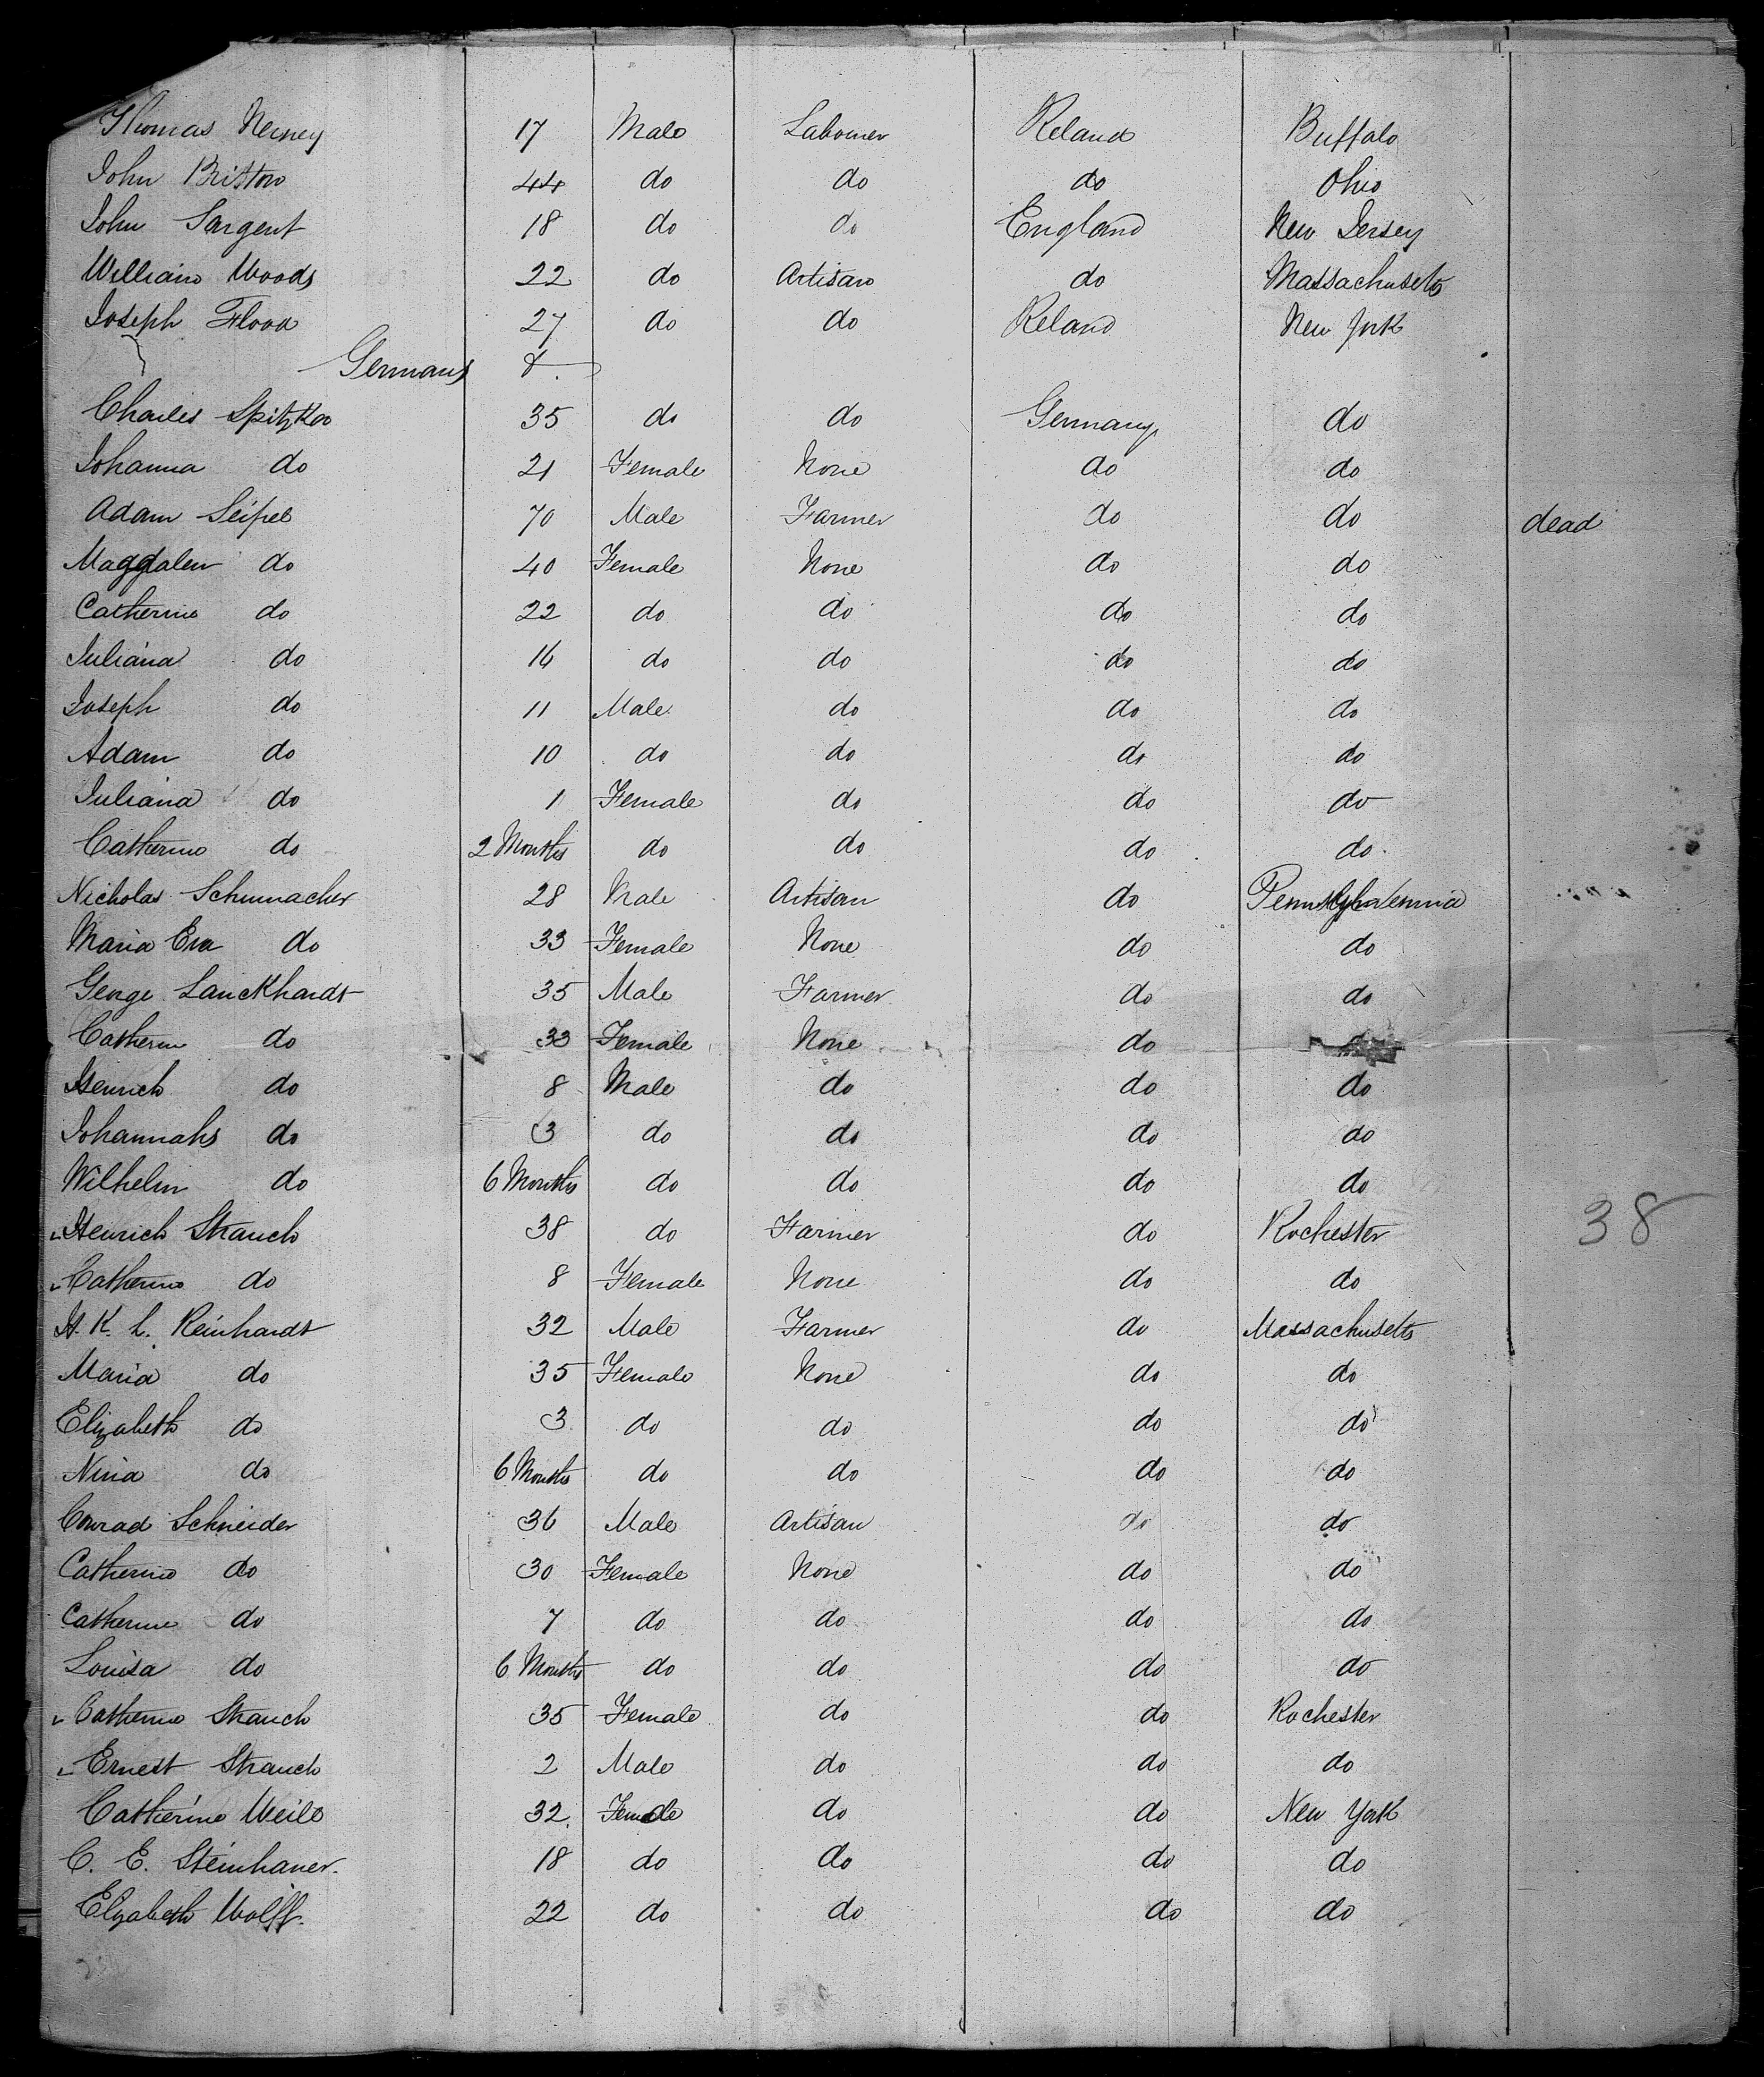 Thomas Nerney 17 Male Labourer Reland Buffalo
John Britton 44 do do do Ohio
John Sargent 18 do do England New Jersey
William Woods 22 do Artisan do Massachusets
Joseph Flood 27 do do Reland New York
Germans
Charles Spitzkoo 35 do do Germany do
Johanna do 21 Female None do do
Adam Seipel 70 Male Farmer do do dead
Magdalen do 40 Female None do do
Catherine do 22 do do do do
Juliana do 16 do do do do
Joseph do 11 Male do do do
Adam do 10 do do do do
Juliana do 1 Female do do do
Catherine do 2 Months do do do do
Nicholas Schumacher 28 Male Artisan do
Maria Eva do 33 Female None do do
George Lauckhardt 35 Male Farmer do do
Catherin do 33 Female None do
Henrich do 8 Male do do do
Johannahs do 3 do do do do
Wilhelm do 6 Months do do do do
Henrich Strauch 38 do Farmer do Rochester 38
Catherine do 8 Female None do do
H. K. L. Reinhardt 32 Male Farmer do Massachusetts
Maria do 35 Female None do do
Elizabeth do 3 do do do do
Nina do 6 Months do do do do
Conrad Schneider 36 Male Artisan do do
Catherine do 30 Female None do do
Catherine do 7 do do do do
Louisa do 6 Months do do do do
Catherine Strauch 35 Female do do Rochester
Ernest Strauch 2 Male do do do
Catherine Weile 32 Female do do New York
C. E. Steinhauer. 18 do do do do
Elyabeth Wolff. 22 do do do do